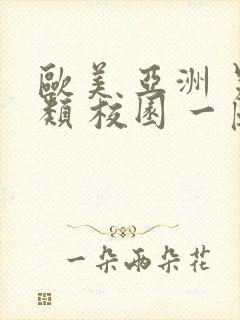 歐美 亞洲
類 校園 一
一朵兩朵花